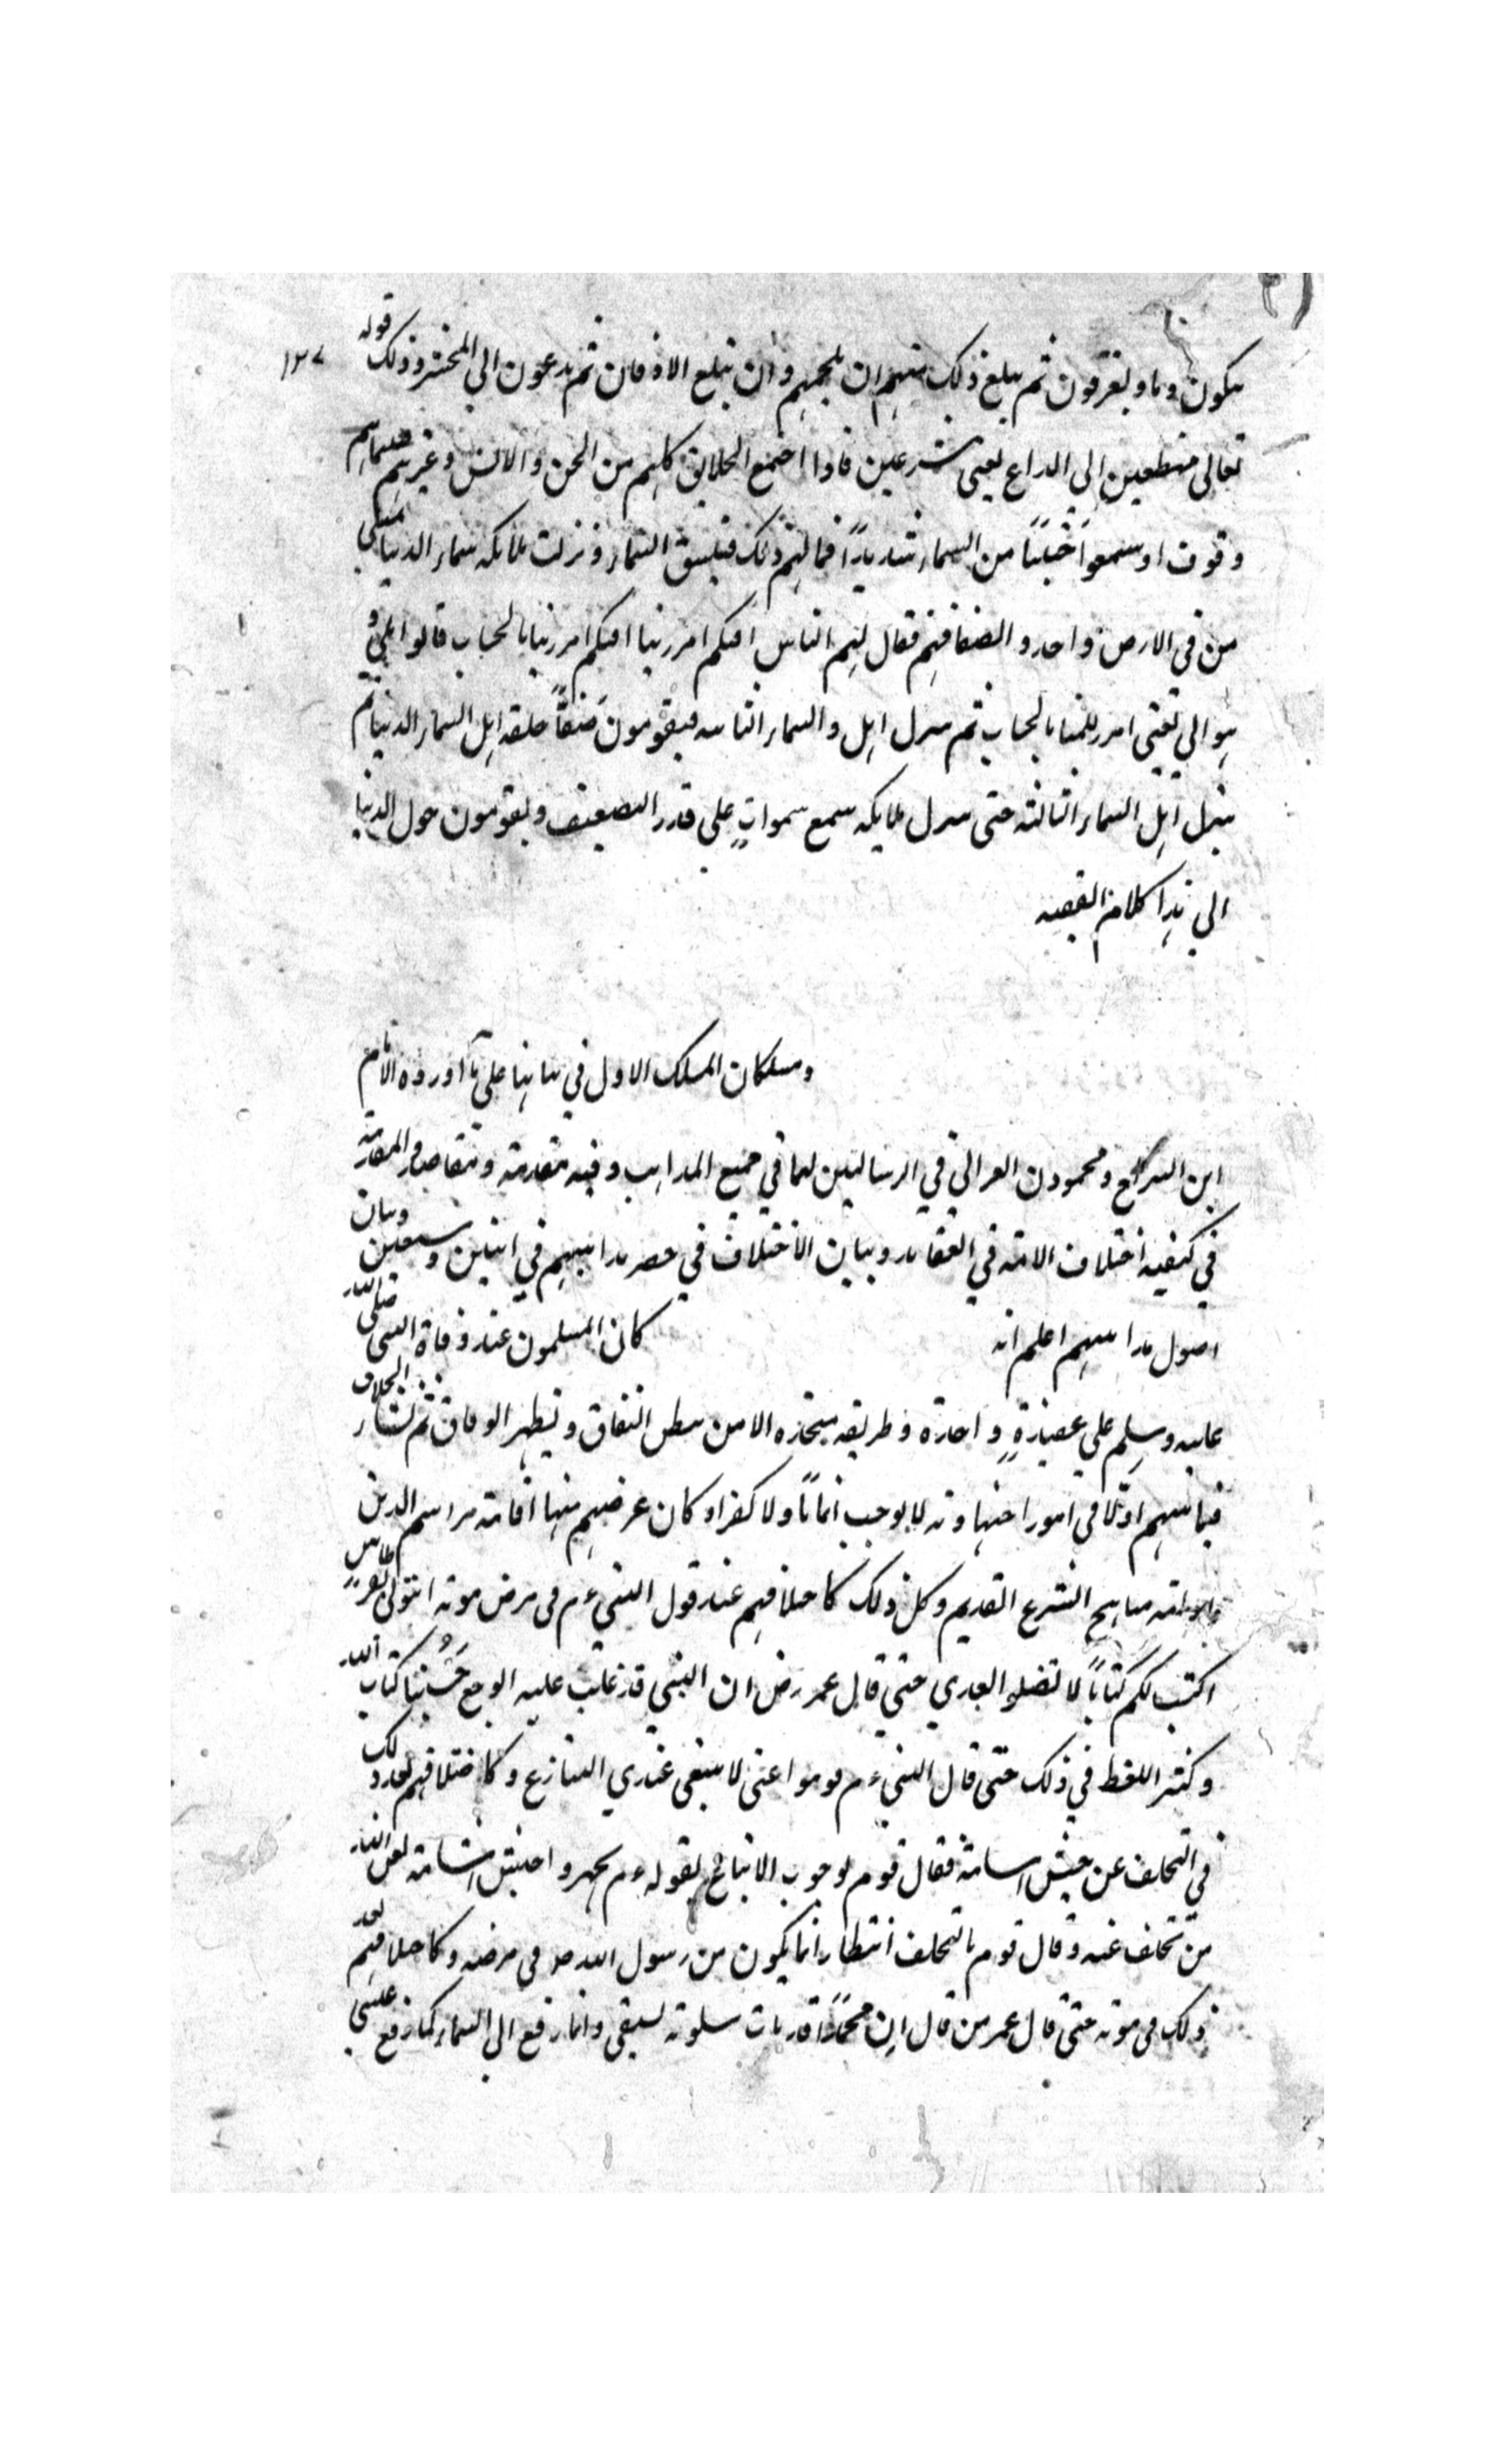 ١٣٧
يبكون دما ويغرقون ثم يبلغ ذلك منهم ان يلجمهم وان يبلغ الاذقان ثم يدعون الي المحشر وذلك قوله
تعالى مهطعين الي الداع يعني مسرعين فاذا اجتمع الخلايق كلهم من الجن والانس وغيرهم فبينماهم
وقوف اذ سمعوا حسا من السماء شديدا فهالهم ذلك فينشق السماء ونزلت ملايكة سماء الدنيا مثلي
من في الارض واخذوا مصافهم فقال لهم الناس افيكم امر ربنا افيكم امر ربنا بالحساب قالوا لا و
هو اتي يعني امر ربنا بالحساب ثم ينزل اهل السماء الثانية فيقومون صفا خلف اهل السماء الدنيا ثم
ينزل اهل السماء الثالثة حتى ينزل ملايكة سبع سموات علي قدر التضعيف ويقومون حول الدنيا
الي هذا كلام الفقيه
ومسلكان المسلك الاول في بيانها علي ما اورده الامام
ابن السراج ومحمود الغزالي في الرسالتين لهما في جميع المذاهب وفيه مقدمة ومقاصد المقدمة
في كيفية اختلاف الامة في العقايد وبيان الاختلاف في حصر مذاهبهم في اثنين وسبعين وبيان
اصول مذاهبهم اعلم انه كان المسلمون عند وفاة النبي صلى الله
عليه وسلم علي عقيدة واحدة وطريقة متحدة الا من يبطن النفاق ويظهر الوفاق ثم نشأ الخلاف
فيما بينهم اولا في امور اجتهادية لا يوجب ايمانا ولا كفرا وكان غرضهم منها اقامة مراسم الدين
وادامة مناهج الشرع القديم وكل ذلك كاختلافهم عند قول النبي ءم في مرض موته ائتوني بقرطاس
اكتب لكم كتابا لا تضلوا بعدي حتى قال عمر رض ان النبي قد غلب عليه الوجع حسبنا كتاب الله
وكثر اللغط في ذلك حتى قال النبي ءم قوموا عني لا ينبغي عندي التنازع وكاختلافهم بعد ذلك
في التخلف عن جيش اسامة فقال قوم بوجوب الاتباع لقوله ءم جهزوا جيش اسامة لعن الله
من تخلف عنه وقال قوم بالتخلف انتظارا لما يكون من رسول الله ص في مرضه وكاختلافهم بعد
ذلك في موته حتى قال عمر من قال ان محمدا قد مات علوته بسيفي وانما رفع الى السماء كما رفع عيسى